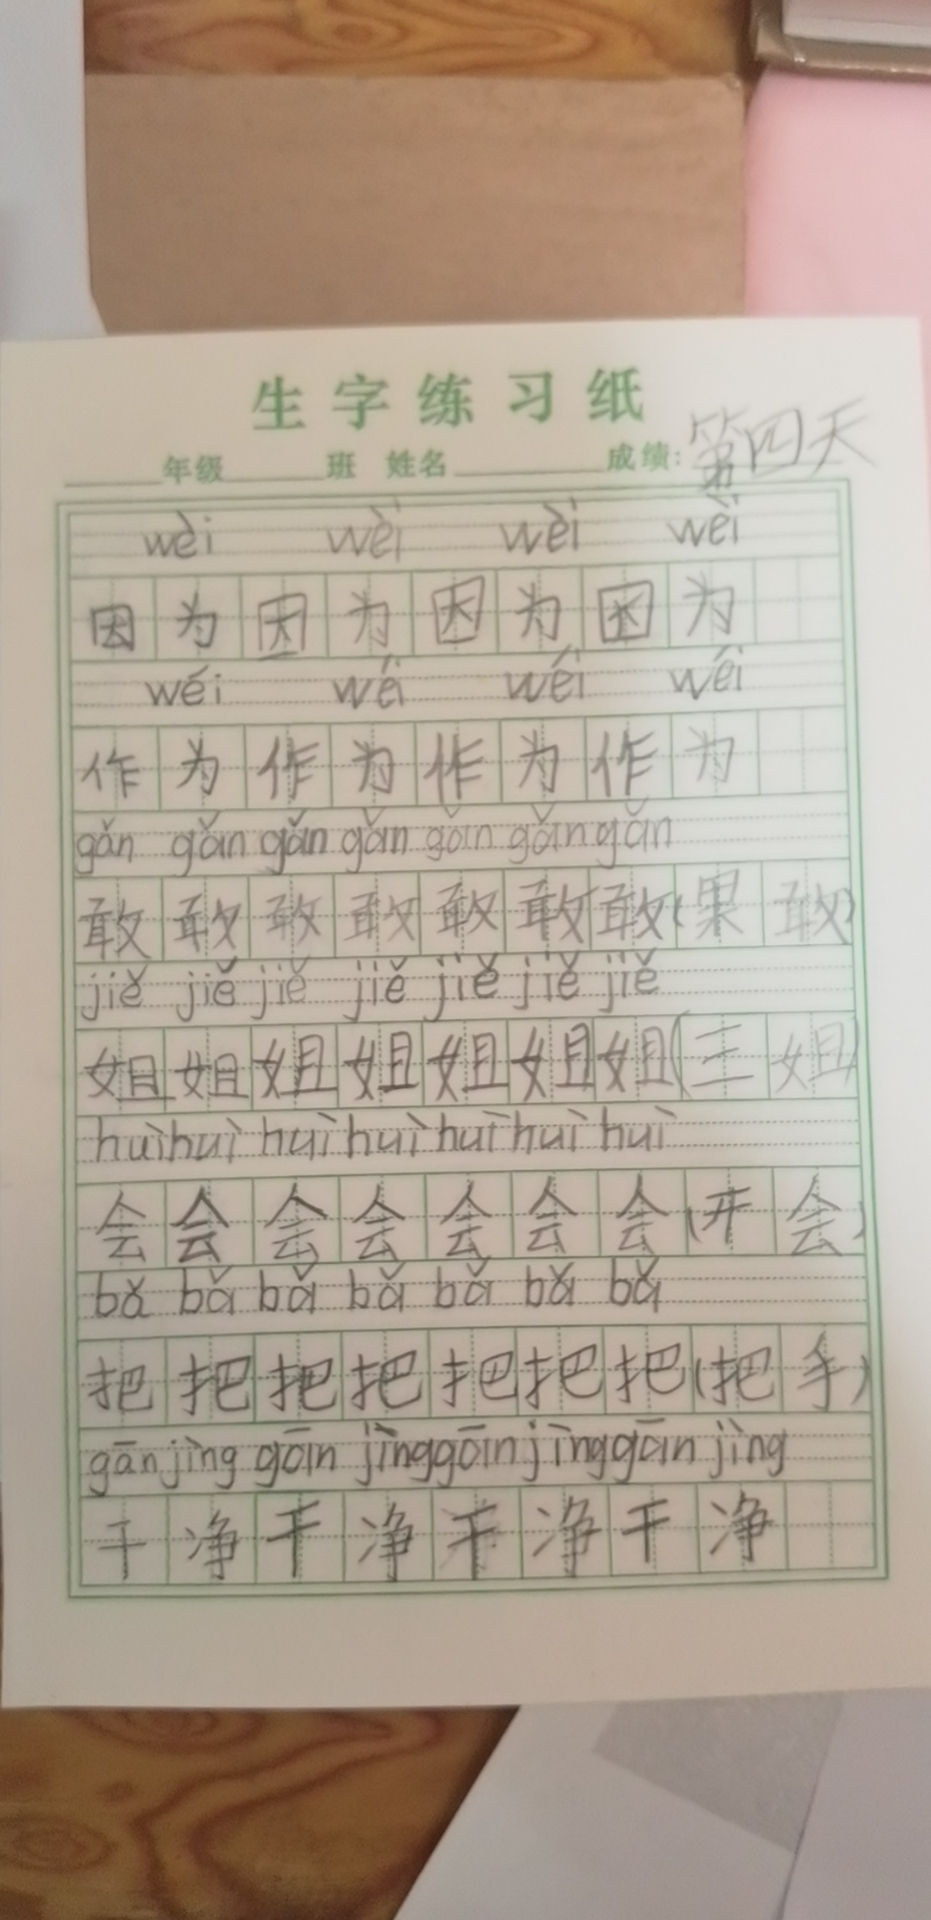 生字练习纸
年级 班 姓名 成绩: 第四天
wèi wèi wèi wèi
因为因为因为因为
wéi wéi wéi wéi
作为作为作为作为
gǎn gǎn gǎn gǎn gǎn gǎn gǎn
敢敢敢敢敢敢敢(果敢)
jiě jiě jiě jiě jiě jiě jiě
姐姐姐姐姐姐姐(三姐)
huì huì huì huì huì huì huì
会会会会会会会(开会)
bǎ bǎ bǎ bǎ bǎ bǎ bǎ
把把把把把把把(把手)
gān jìng gān jìng gān jìng gān jìng
干净干净干净干净